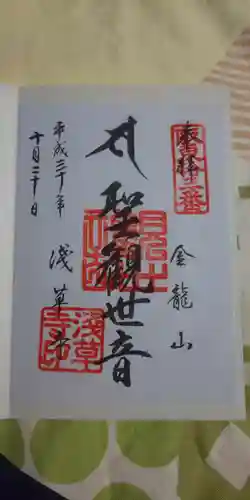 奉拝
金龍山
聖観世音
浅草寺
平成三十年
十月二十日
浅草
寺印